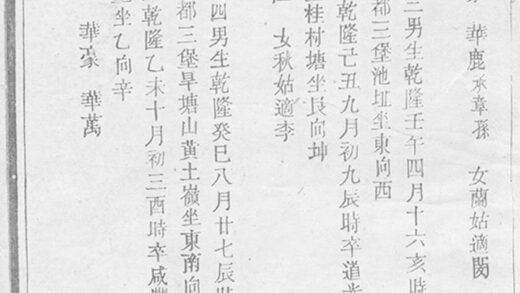 華鹿承章孫 女蘭姑適閔
三男生乾隆壬午四月十六亥時
都三堡池坵坐東向西
乾隆己丑九月初九辰時卒道光
桂村塘坐艮向坤
女秋姑適李
四男生乾隆癸巳八月廿七辰時
都三堡旱塘山黃土嶺坐東南向
乾隆乙未十月初三酉時卒咸豐
坐乙向辛
華豪 華萬